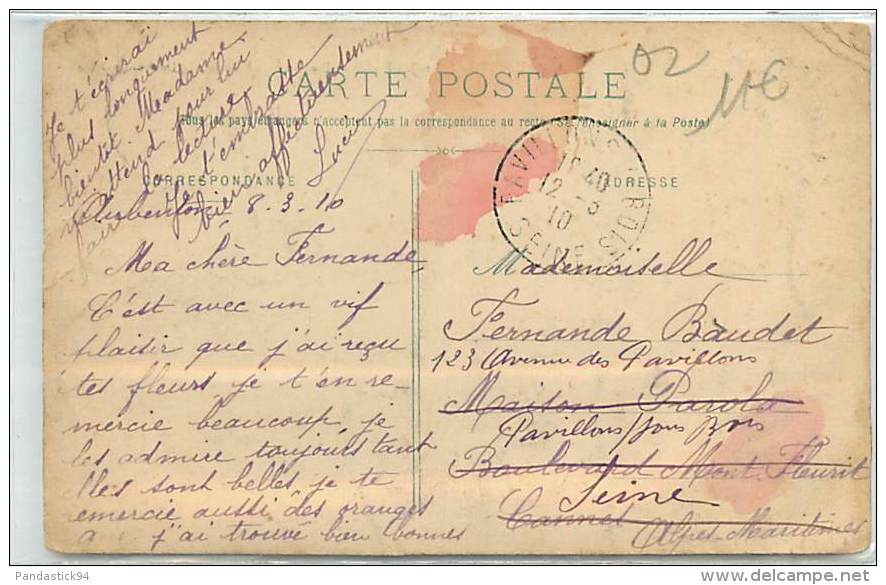 Je t'écrirai
plus longuement
bientôt Meadame
m'attend pour lui
faire la lecture
Je t'embrasse
bien affectueusement
Lucie
CARTE POSTALE
Tous les pays étrangers n'acceptent pas la correspondance au recto (Se renseigner à la Poste)
CORRESPONDANCE
ADRESSE
Aubenton 8.3.10
Ma chère Fernande
C'est avec un vif
plaisir que j'ai reçu
tes fleurs je t'en re-
mercie beaucoup, je
les admire toujours tant
elles sont belles je te
remercie aussi des oranges
j'ai trouvé bien bonnes
PAVILLONS S. BOIS
SEINE
12 40
12 - 3
10
Mademoiselle
Fernande Baudet
123 Avenue des Pavillons
Maison Parola
Pavillons sous Bois
Boulevard Mont Fleurit
Seine
Cannes
Alpes-Maritimes
02
11€
Pandastick94
delcampe.net